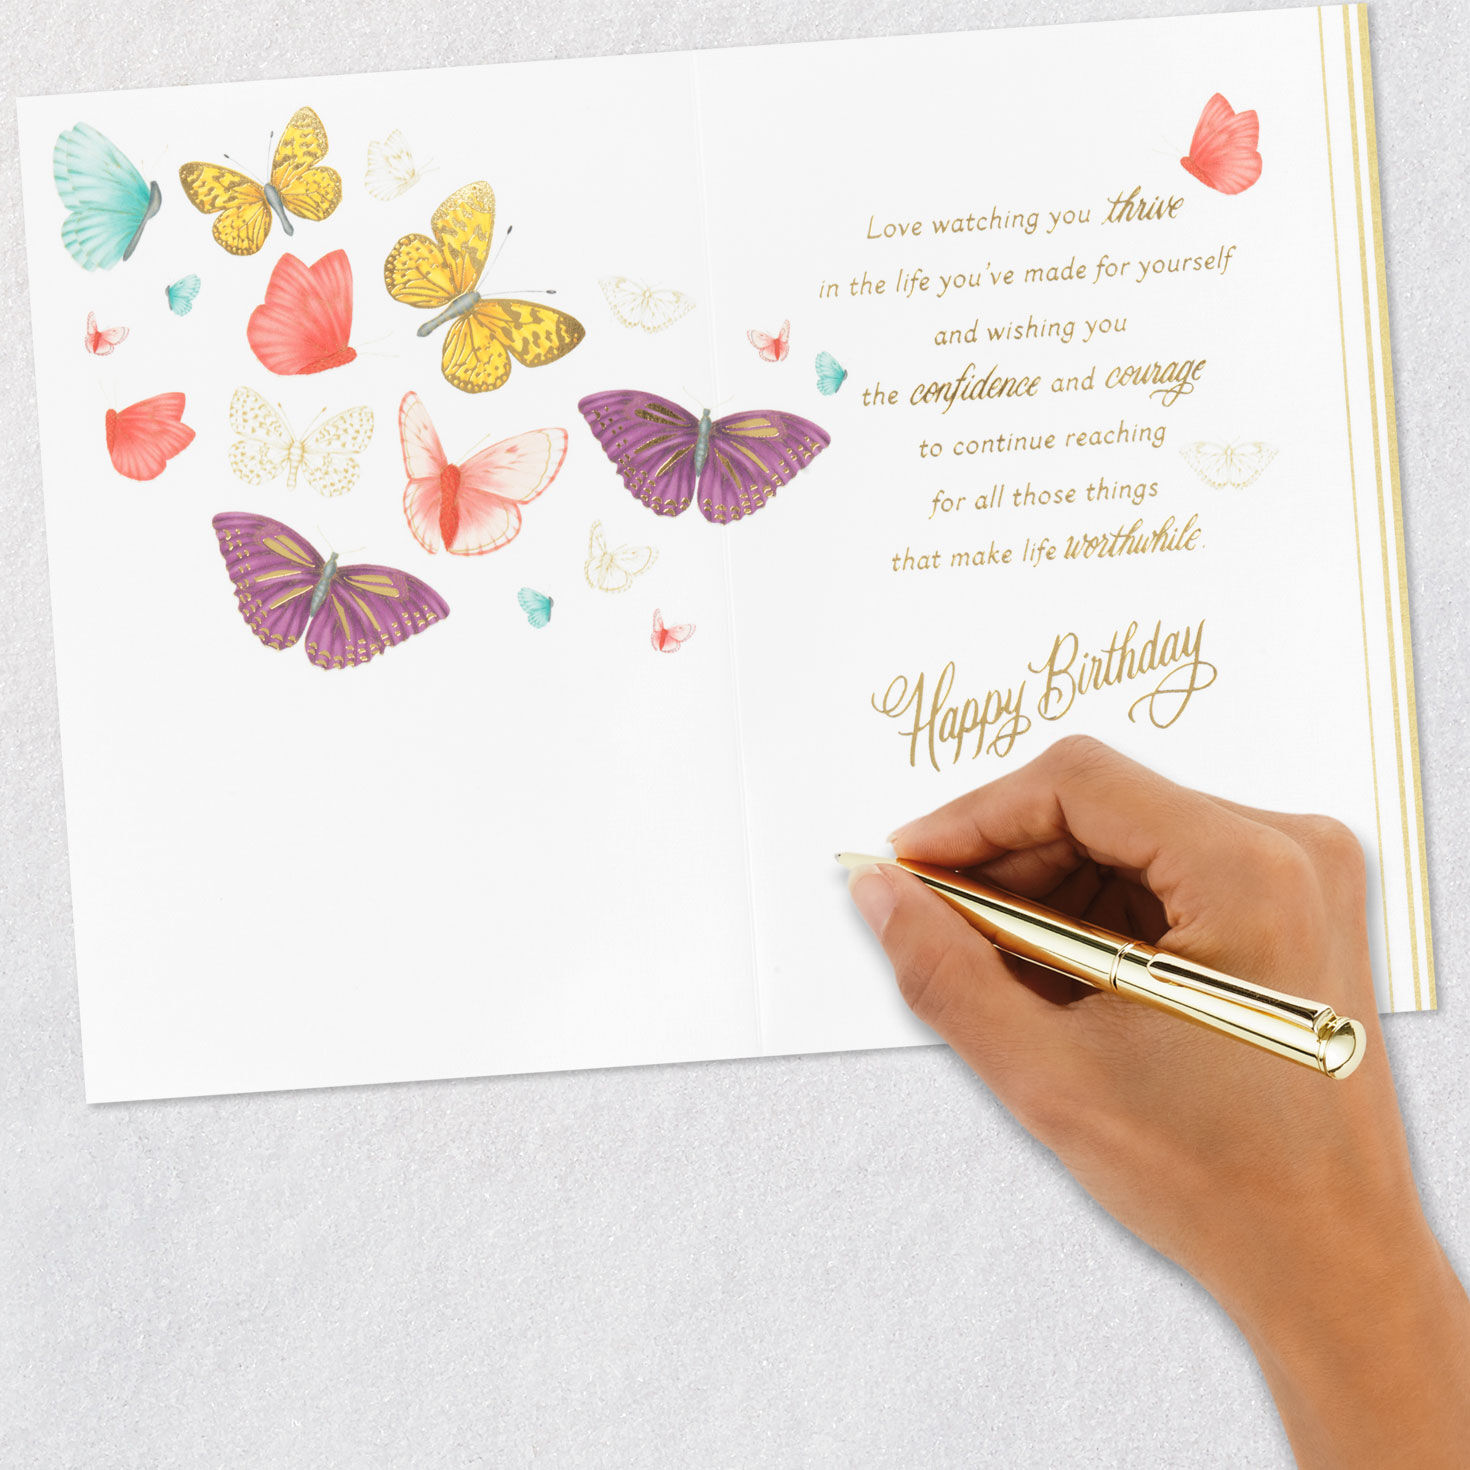 Love watching you thrive
in the life you've made for yourself
and wishing you
the confidence and courage
to continue reaching
for all those things
that make life worthwhile.
Happy Birthday